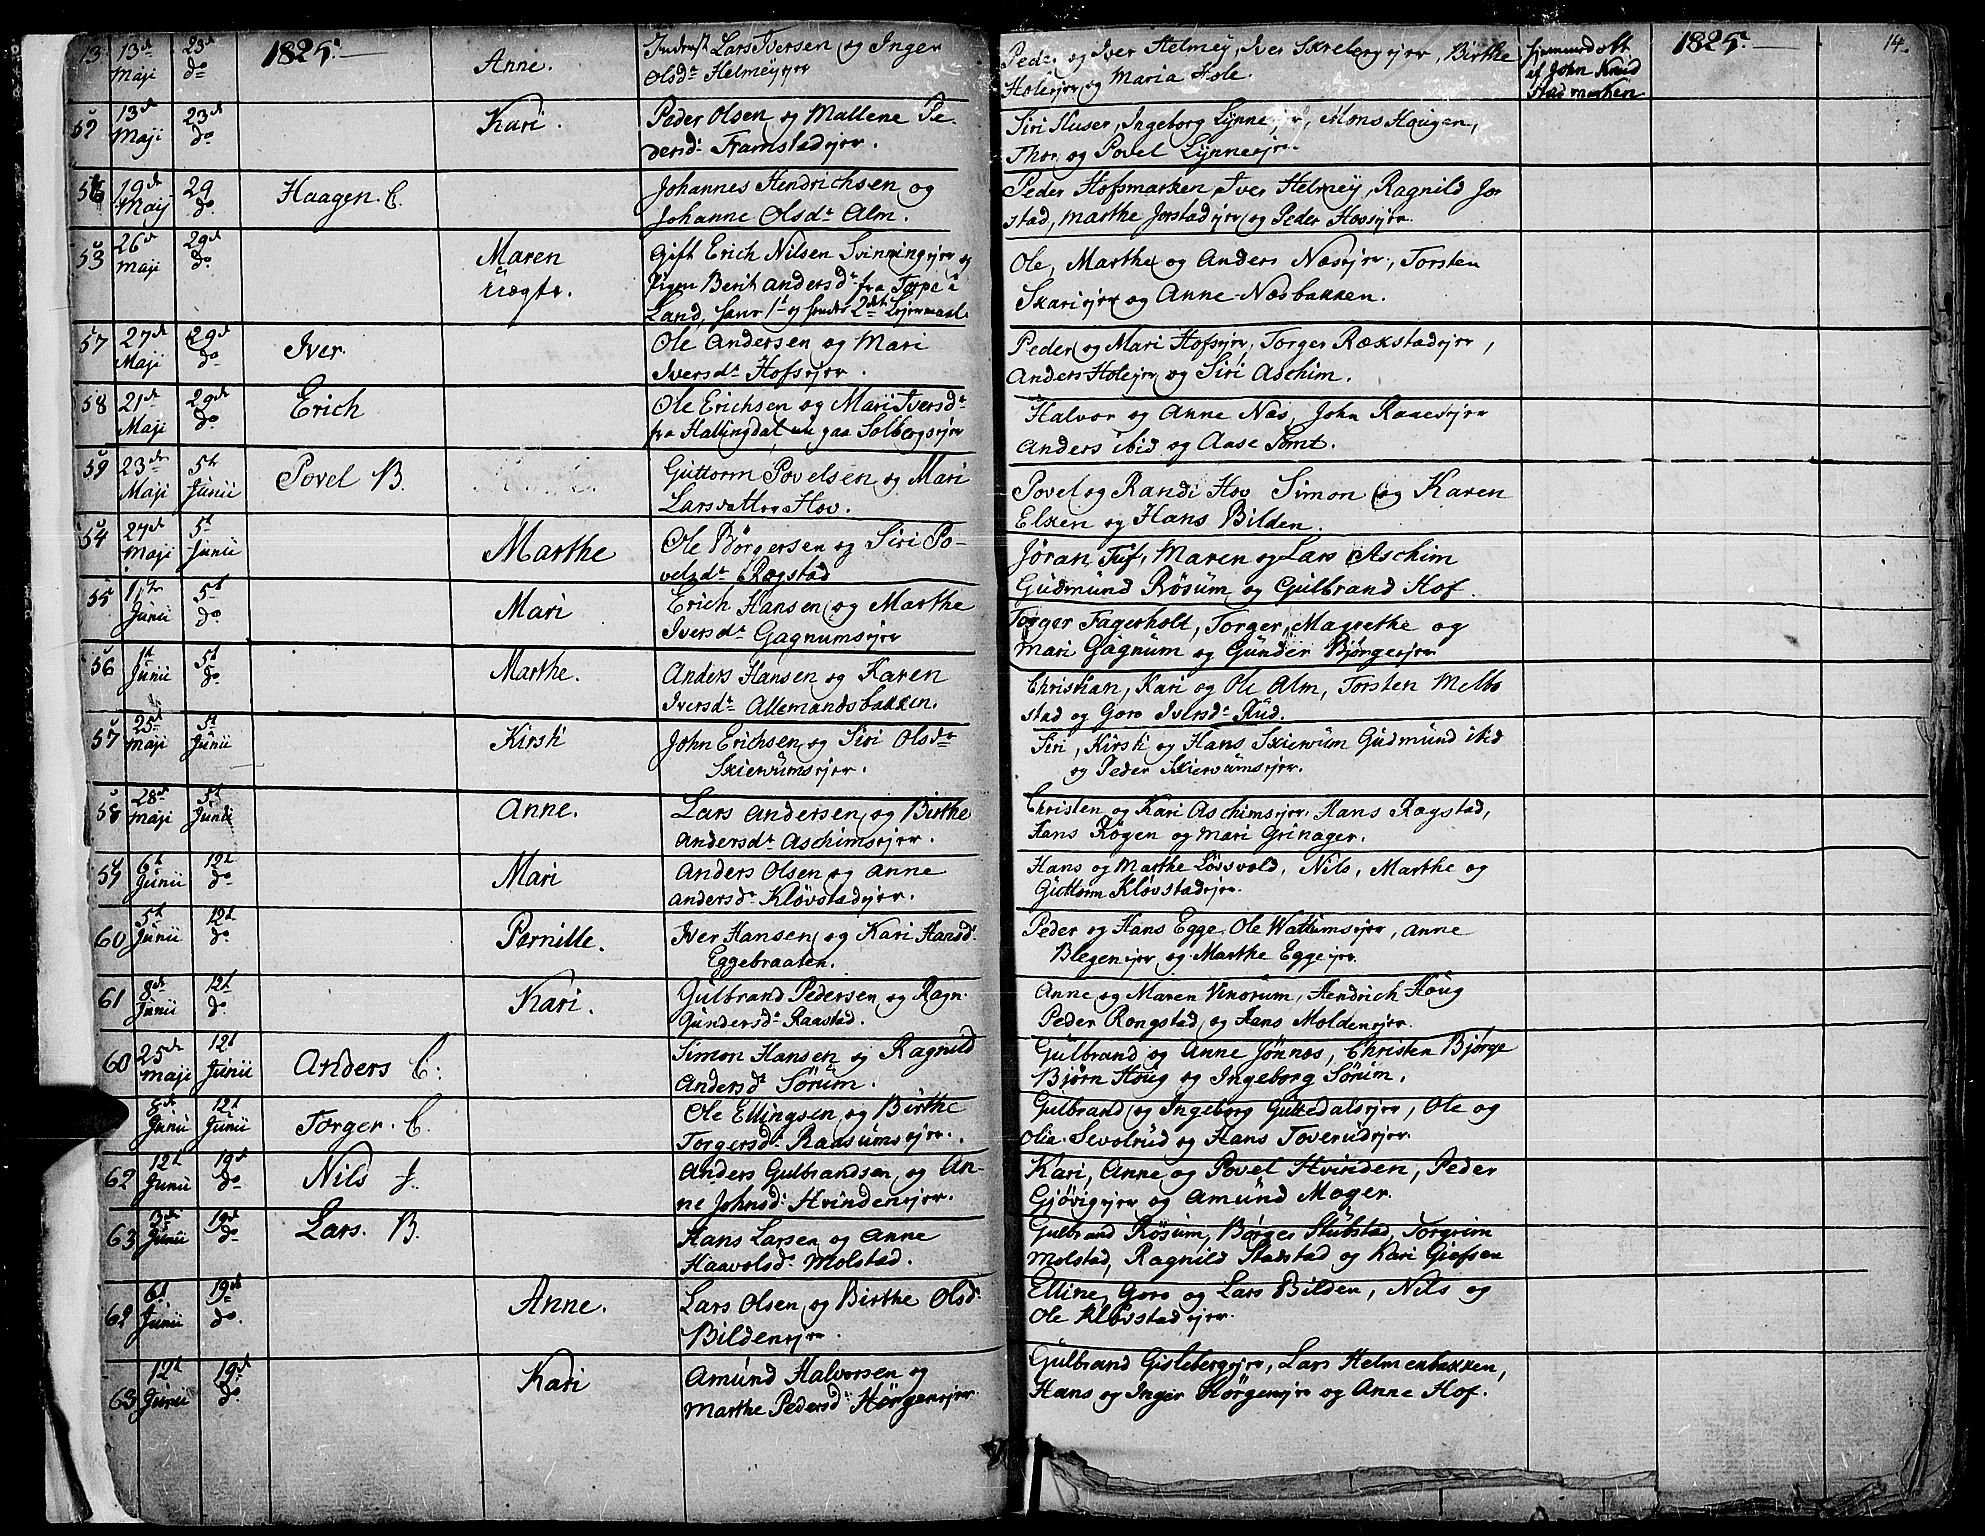 13 13de 23de 1825. Anne. Inderst Lars Iversen og Inger
Maji do Olsdr Helmeyejer
Peder og Iver Helmey, Iver Skrebergejer, Birthe
Holeejer og Maria Hole.
hjemmedøbt
af John Knud
stad marken
1825. 14.
52 13de 23de Kari. Peder Olsen og Mallene Pe
Maji do dersdr Framstadejer.
Siri Huser, Ingeborg Lynneejer, Mons Hougen,
Thor og Povel Lynneejer.
56 19de 29 Haagen. C. Johannes Hendrichsen og
Maij do Johanne Olsdr Alm.
Peder Hofsmarken, Iver Helmey, Ragnild Jor
stad, Marthe Jorstadejer og Peder Hovsejer.
53 26de 29de Maren Gift Erich Nilsen Svinningejer og
Maji do uægte. Pigen Berit Andersdr fra Torpe i
Land, hans 1t og hendes 2det Lejermaal.
Ole, Marthe og Anders Næsejer, Torsten
Skariejer og Anne Næsbakken.
57 27de 29de Iver. Ole Andersen og Mari
Maji do Iversdr Hofsejer.
Peder og Mari Hofsejer, Torger Rækstadejer,
Anders Holeejer og Siri Aschim.
58 21de 29de Erich Ole Erichsen og Mari Iversdr
Maji do fra Hallingdal nu paa Solbergsejer
Halvor og Anne Næs, John Raaeejer
Anders ibid og Aase Tomt.
59 23de 5te Povel B. Guttorm Povelsen og Mari
Maji Junii Larsdatter Hov.
Povel og Randi Hov Simon og Karen
Elken og Hans Bilden.
54 27de 5t Marthe Ole Børgersen og Siri Po-
Maji Junii velsdr Rægstad
Jøran Tuf, Maren og Lars Aschim
Gudmund Røsum og Gulbrand Hof.
55 1te 5t Mari Erich Hansen og Marthe
Junii do Iversdr Gagnumsejer
Torger Fagerholt, Torger, Magrethe og
Mari Gagnum og Gunder Bjørgeejer
56 1t 5t Marthe. Anders Hansen og Karen
Junii do Iversdr Allemandsbakken.
Christian, Kari og Ole Alm, Torsten Melbo
stad og Goro Iversdr Rud.
57 25de 5t Kirsti John Erichsen og Siri Olsdr
Maji Junii Skiervumsejer.
Siri, Kirsti og Hans Skiervum Gudmund ibid
og Peder Skiervumsejer.
58 28de 5t Anne. Lars Andersen og Birthe
Maji Junii Andersdr Aschimsejer.
Christen og Kari Aschimsejer, Hans Rægstad,
Hans Kogen og Mari Grinager.
59 6t 12t Mari Anders Olsen og Anne
Junii do Andersdr Kløvstadejer.
Hans og Marthe Løvsvold, Nils, Marthe og
Guttorm Kløvstadejer.
60 5t 12t Pernille. Iver Hansen og Kari Hansdr
Junii do Eggebraaten.
Peder og Hans Egge, Ole Wattumsejer, Anne
Blegenejer og Marthe Eggeejer.
61 8de 12t Kari. Gulbrand Pedersen og Ragn.
Junii do Gundersdr Raastad.
Anne og Maren Vinorum, Hendrich Houg
Peder Rongstad og Hans Moldenejer.
60 25de 12t Anders C. Simon Hansen og Ragnild
Maji Junii Andersdr Sørum.
Gulbrand og Anne Jønnæs, Christen Bjørge
Bjørn Houg og Ingeborg Sørum.
8de 12t Torger. C. Ole Ellingsen og Birthe
Junii Junii Torgersdr Raasumsejer.
Gulbrand og Ingeborg Guttedalsejer, Ole og
Olia Sevolrud og Hans Toverudejer.
62 12t 19de Nils J. Anders Gulbrandsen og An-
Junii do ne Johnsdr Hvindenejer.
Kari, Anne og Povel Hvinden, Peder
Gjøvigejer og Amund Moger.
63 3de 19de Lars. B. Hans Larsen og Anne
Junii do Haavolsdr Molstad.
Gulbrand Røsum, Børger Stubstad, Torgrim
Molstad, Ragnild Stadstad og Kari Giefsen
62 6t 19de Anne. Lars Olsen og Birthe Olsd.
Junii do. Bildenejer.
Elline, Goro og Lars Bilden, Nils og
Ole Kløvstadejer.
63 12t 19de Kari Amund Halvorsen og
Junii do. Marthe Pedersdr Horgenejer.
Gulbrand Gislebergejer, Lars Helmenbakken,
Hans og Inger Horgenejer og Anne Hof.